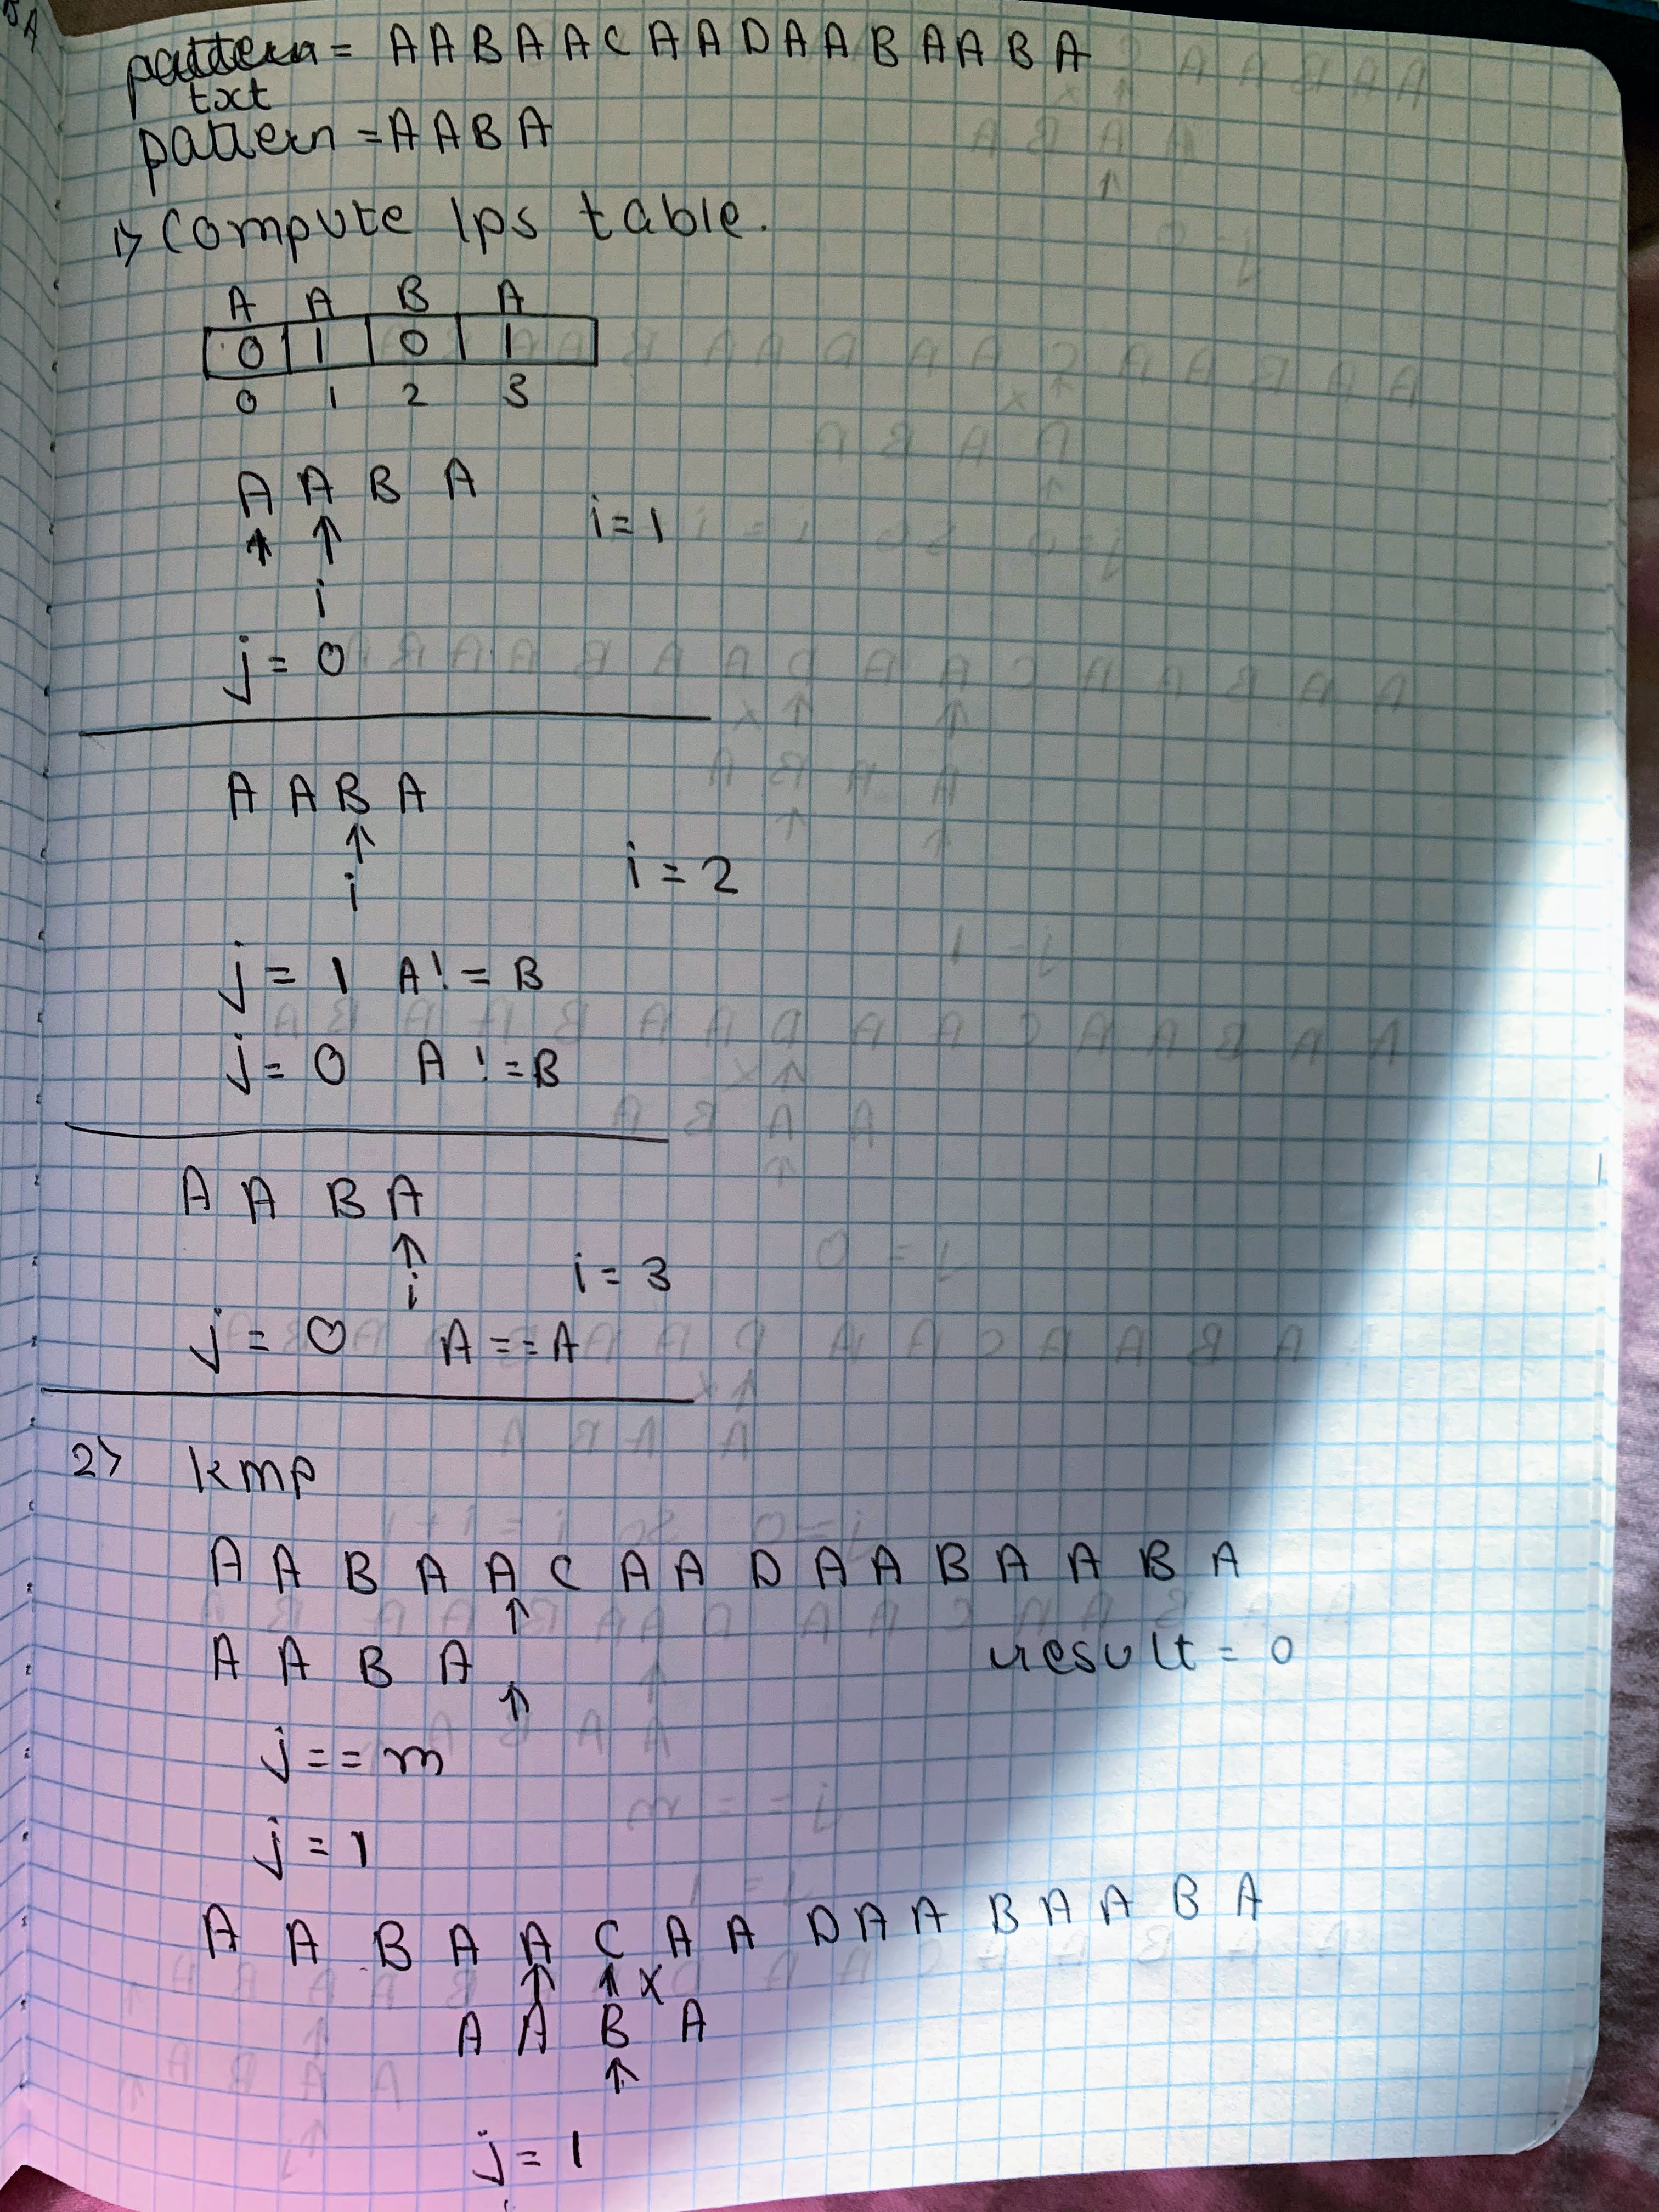 BA
pattern = A A B A A C A A D A A B A A B A
txt
pattern = A A B A
1> Compute lps table.
A A B A
0 1 0 1
0 1 2 3
A A B A
i = 1
↑ ↑
i
j = 0
A A B A
↑
i
i = 2
j = 1 A != B
j = 0 A != B
A A B A
↑
i
i = 3
j = 0 A == A
2> kmp
A A B A A C A A D A A B A A B A
↑
A A B A
result = 0
↑
j == m
j = 1
A A B A A C A A D A A B A A B A
↑ ↑ x
A A B A
↑
j = 1